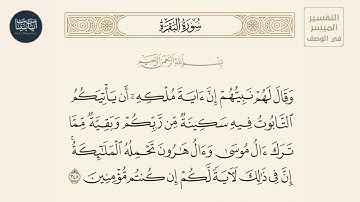 التفسير
الميسر
في الوصف
سُورَةُ البَقَرَةِ
بِسْمِ اللَّهِ الرَّحْمَٰنِ الرَّحِيمِ
وَقَالَ لَهُمْ نَبِيُّهُمْ إِنَّ ءَايَةَ مُلْكِهِۦٓ أَن يَأْتِيَكُمُ
ٱلتَّابُوتُ فِيهِ سَكِينَةٌ مِّن رَّبِّكُمْ وَبَقِيَّةٌ مِّمَّا
تَرَكَ ءَالُ مُوسَىٰ وَءَالُ هَٰرُونَ تَحْمِلُهُ ٱلْمَلَٰٓئِكَةُۚ
إِنَّ فِي ذَٰلِكَ لَءَايَةً لَّكُمْ إِن كُنتُم مُّؤْمِنِينَ ٢٤٨